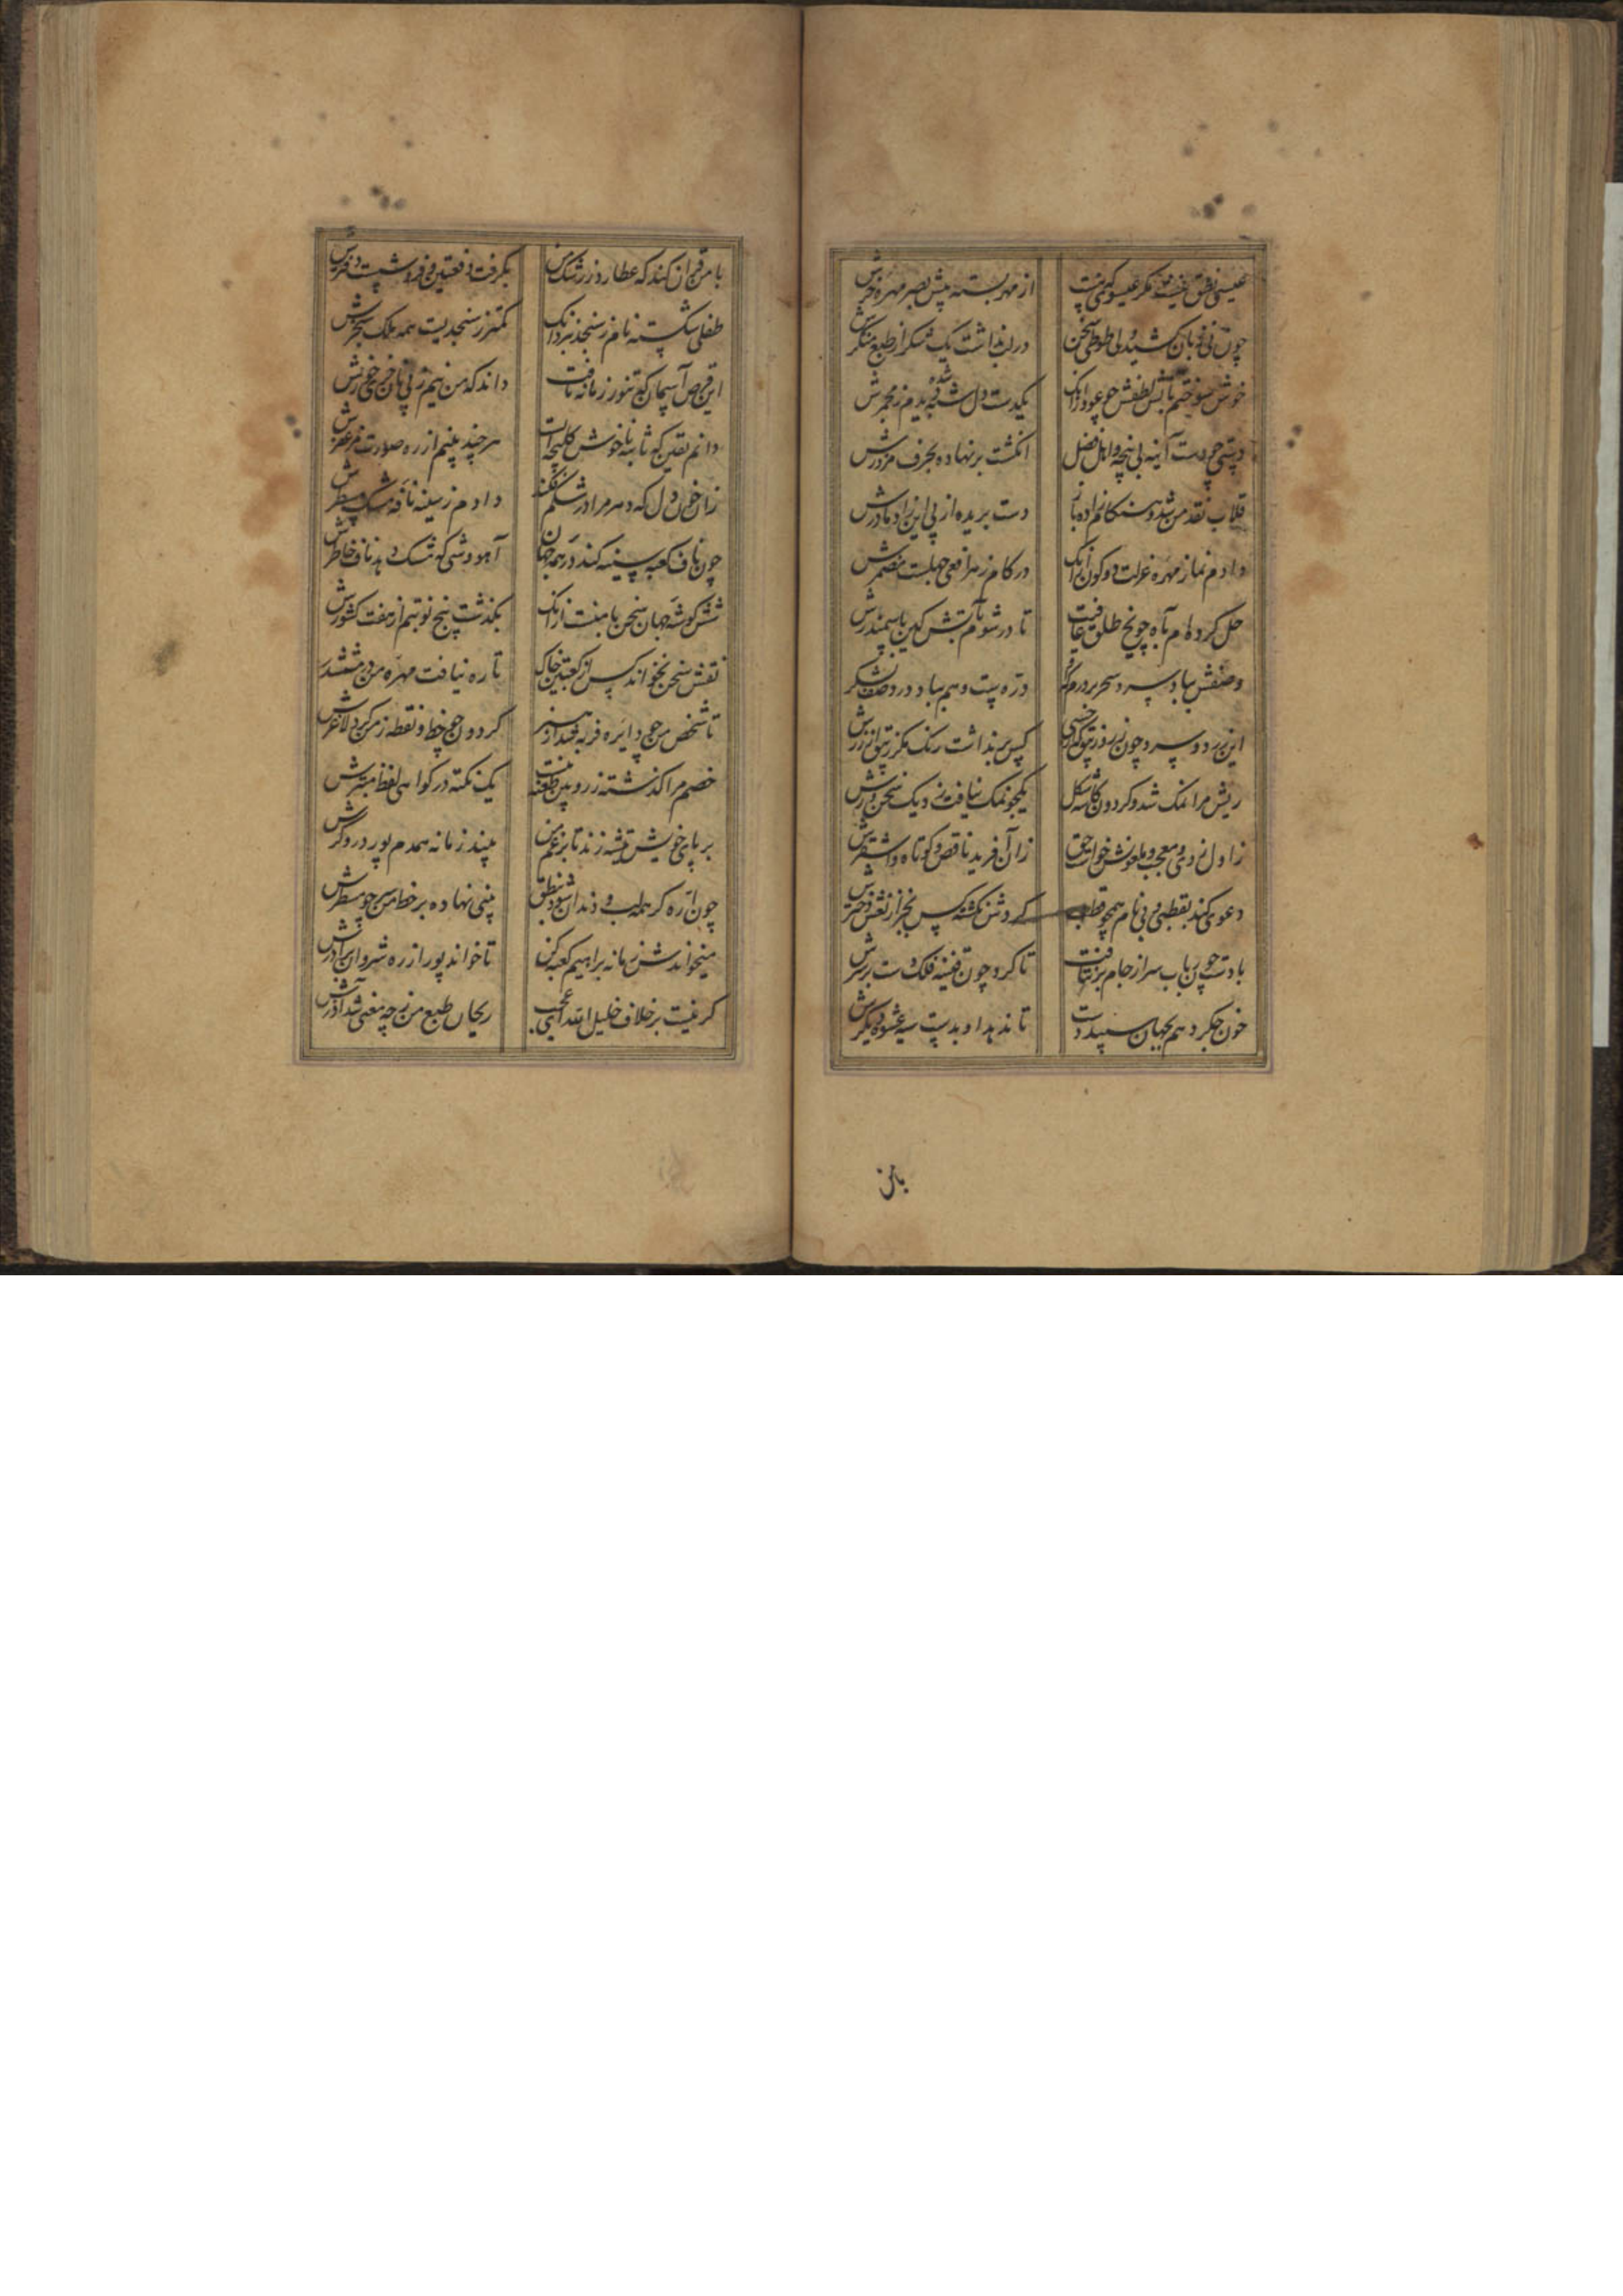 عیسی نطق نیست مکر عیسو کمی نیت از مهر بسته پیش بصر مهره خرش
چون نی زبان کشیده لی طوطی سخن در لب نداشت یک شکر از طبع منکرش
خوش سوختم بآتش لطفش چو عود از آنک یکدست دل شده ندیدم ز مجمرش
چو دست آینه بی پنجه و اهل فضل انگشت بر نهاده بحرف مزورش
قلاب نقد من شد و سنگانم از ده دست بریده از پی این زاد مادرش
دادم نماز مهره عزلت دو کون از آنک در کام زهر افعی جهلست مضمرش
حل کرده ام بآه چو یخ طلق عافیت تا در شوم بآتش کین با سمندرش
وصفش مباد سرد و سحر بر درم که دره پست و هم مباد در وصف
این زرد و سرد چون زر روز کس بر نداشت رنک مکر
ریش مرا نمک شد و کردون کاسه شکل یکجو نمک نیافت ز دیک سخنورش
ز اول دوی و معجب و ملعونش خواست حق زان آفرید ناقص و کوتاه و اشقرش
دعوی کند بقطبی و بی نام همچو قطب کردش نکشته کس بجز از نعش دخترش
بادت چون رباب سر از جام بر نتافت تا کرد چون قنینه فلک دست بر سرش
خون جکر دهم بجهان سپید دست تا ندهد او بدست سیه عشوه دیکرش
بامن
با من قران کند که عطارد ز رشک من بکرفت دقعتین و فرو شست دفترش
طفلی شکسته نام ز سنجد برد از آنک کمتر ز سنجدیست همه ملک سنجرش
این قرص آسمان که تنور زمانه تافت داند که من نیم ز پی نان خری خورش
دانم یقین که تا به ناخوش کلیچه است هر چند بینم از ره صورت مزعفرش
زان خون دل که دهر مرا در شکم فکند دادم ز سینه نافه مشک معطرش
چون ناف کعبه سینه کند در همه جهان آهووشی که مشک دهد ناف خاطرش
شش کوشه جهان سخن با منست از آنک بکذشت پنج نوبتم از هفت کشورش
نقش سخن نخواند کس از کعبتین خاک تا ره نیافت مهره من در مششدرش
تا شخص من چو دایره فربه شد از هنر کردون چو خط و نقطه ز من کرد لاغرش
خصم مرا کذشته ز روبین طعنه نیست یک نکته در کواهی لفظ مبترش
بر پای خویش تیشه زند تا بزعم من بیند زمانه همدم پور دروکرش
چون اره کر همه لب و دندان شود بنطق بینی نهاده بر خط من سر چو مسطرش
میخواندش زمانه براهیم کعبه کن تا خواند پور از ره شروان برادرش
کر نیست بر خلاف خلیل الله ای عجب ریحان طبع من ز چه معنی شد آذرش